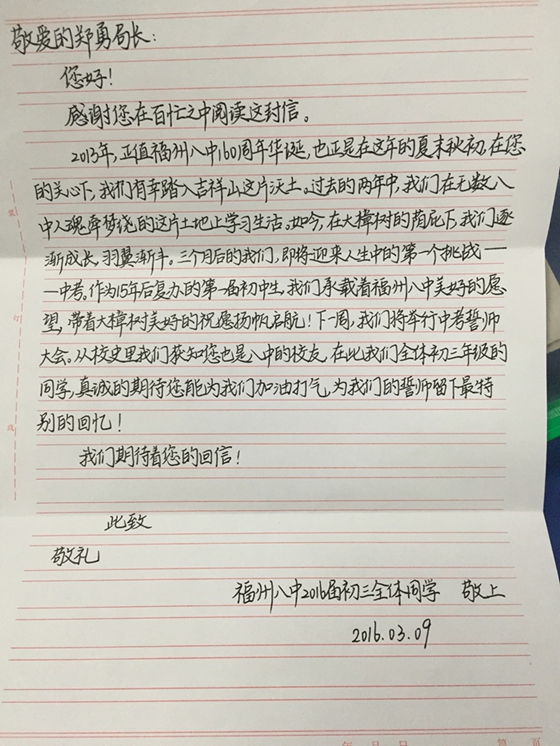 敬爱的郑勇局长：
您好！
感谢您在百忙之中阅读这封信。
2013年，正值福州八中160周年华诞，也正是在这年的夏末秋初，在您
的关心下，我们有幸踏入吉祥山这片沃土。过去的两年中，我们在无数八
中人魂牵梦绕的这片土地上学习生活。如今，在大樟树的荫庇下，我们逐
渐成长，羽翼渐丰。三个月后的我们，即将迎来人生中的第一个挑战—
—中考。作为15年后复办的第一届初中生，我们承载着福州八中美好的愿
望，带着大樟树美好的祝愿扬帆启航！下一周，我们将举行中考誓师
大会。从校史里我们获知您也是八中的校友，在此我们全体初三年级的
同学，真诚的期待您能为我们加油打气，为我们的誓师留下最特
别的回忆！
我们期待着您的回信！
此致
敬礼
福州八中2016届初三全体同学 敬上
2016.03.09
年 月 日 第 页